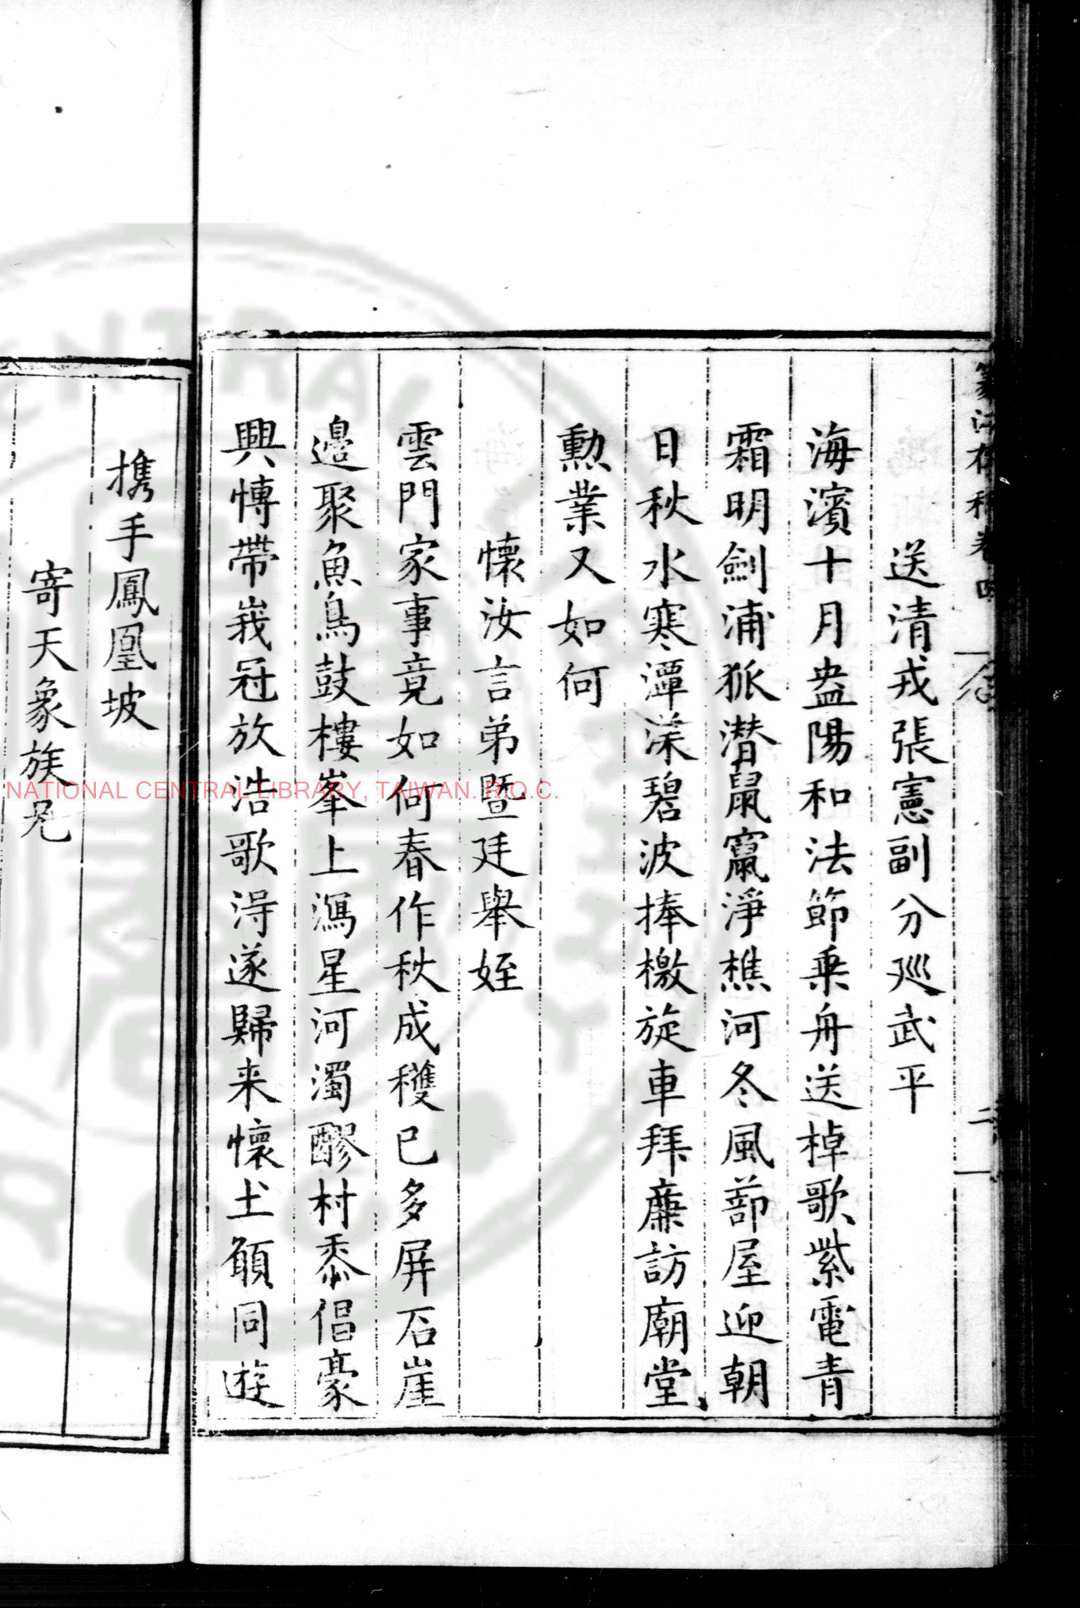 送清戎張憲副分廵武平
海濱十月盎陽和法節乗舟送棹歌紫電青
霜明劍浦狐潜鼠竄淨樵河冬風蔀屋迎朝
日秋水寒潭深碧波捧檄旋車拜㢘訪廟堂
勲業又如何
懷汝言弟曁廷舉姪
雲門家事竟如何春作秋成穫已多屏石崖
邉聚魚鳥鼓樓峯上瀉星河濁醪村黍倡豪
興愽帶峩冠放浩歌淂遂歸来懷土願同遊
携手鳳凰坡
寄天象族兄
NATIONAL CENTRAL LIBRARY, TAIWAN. R.O.C.